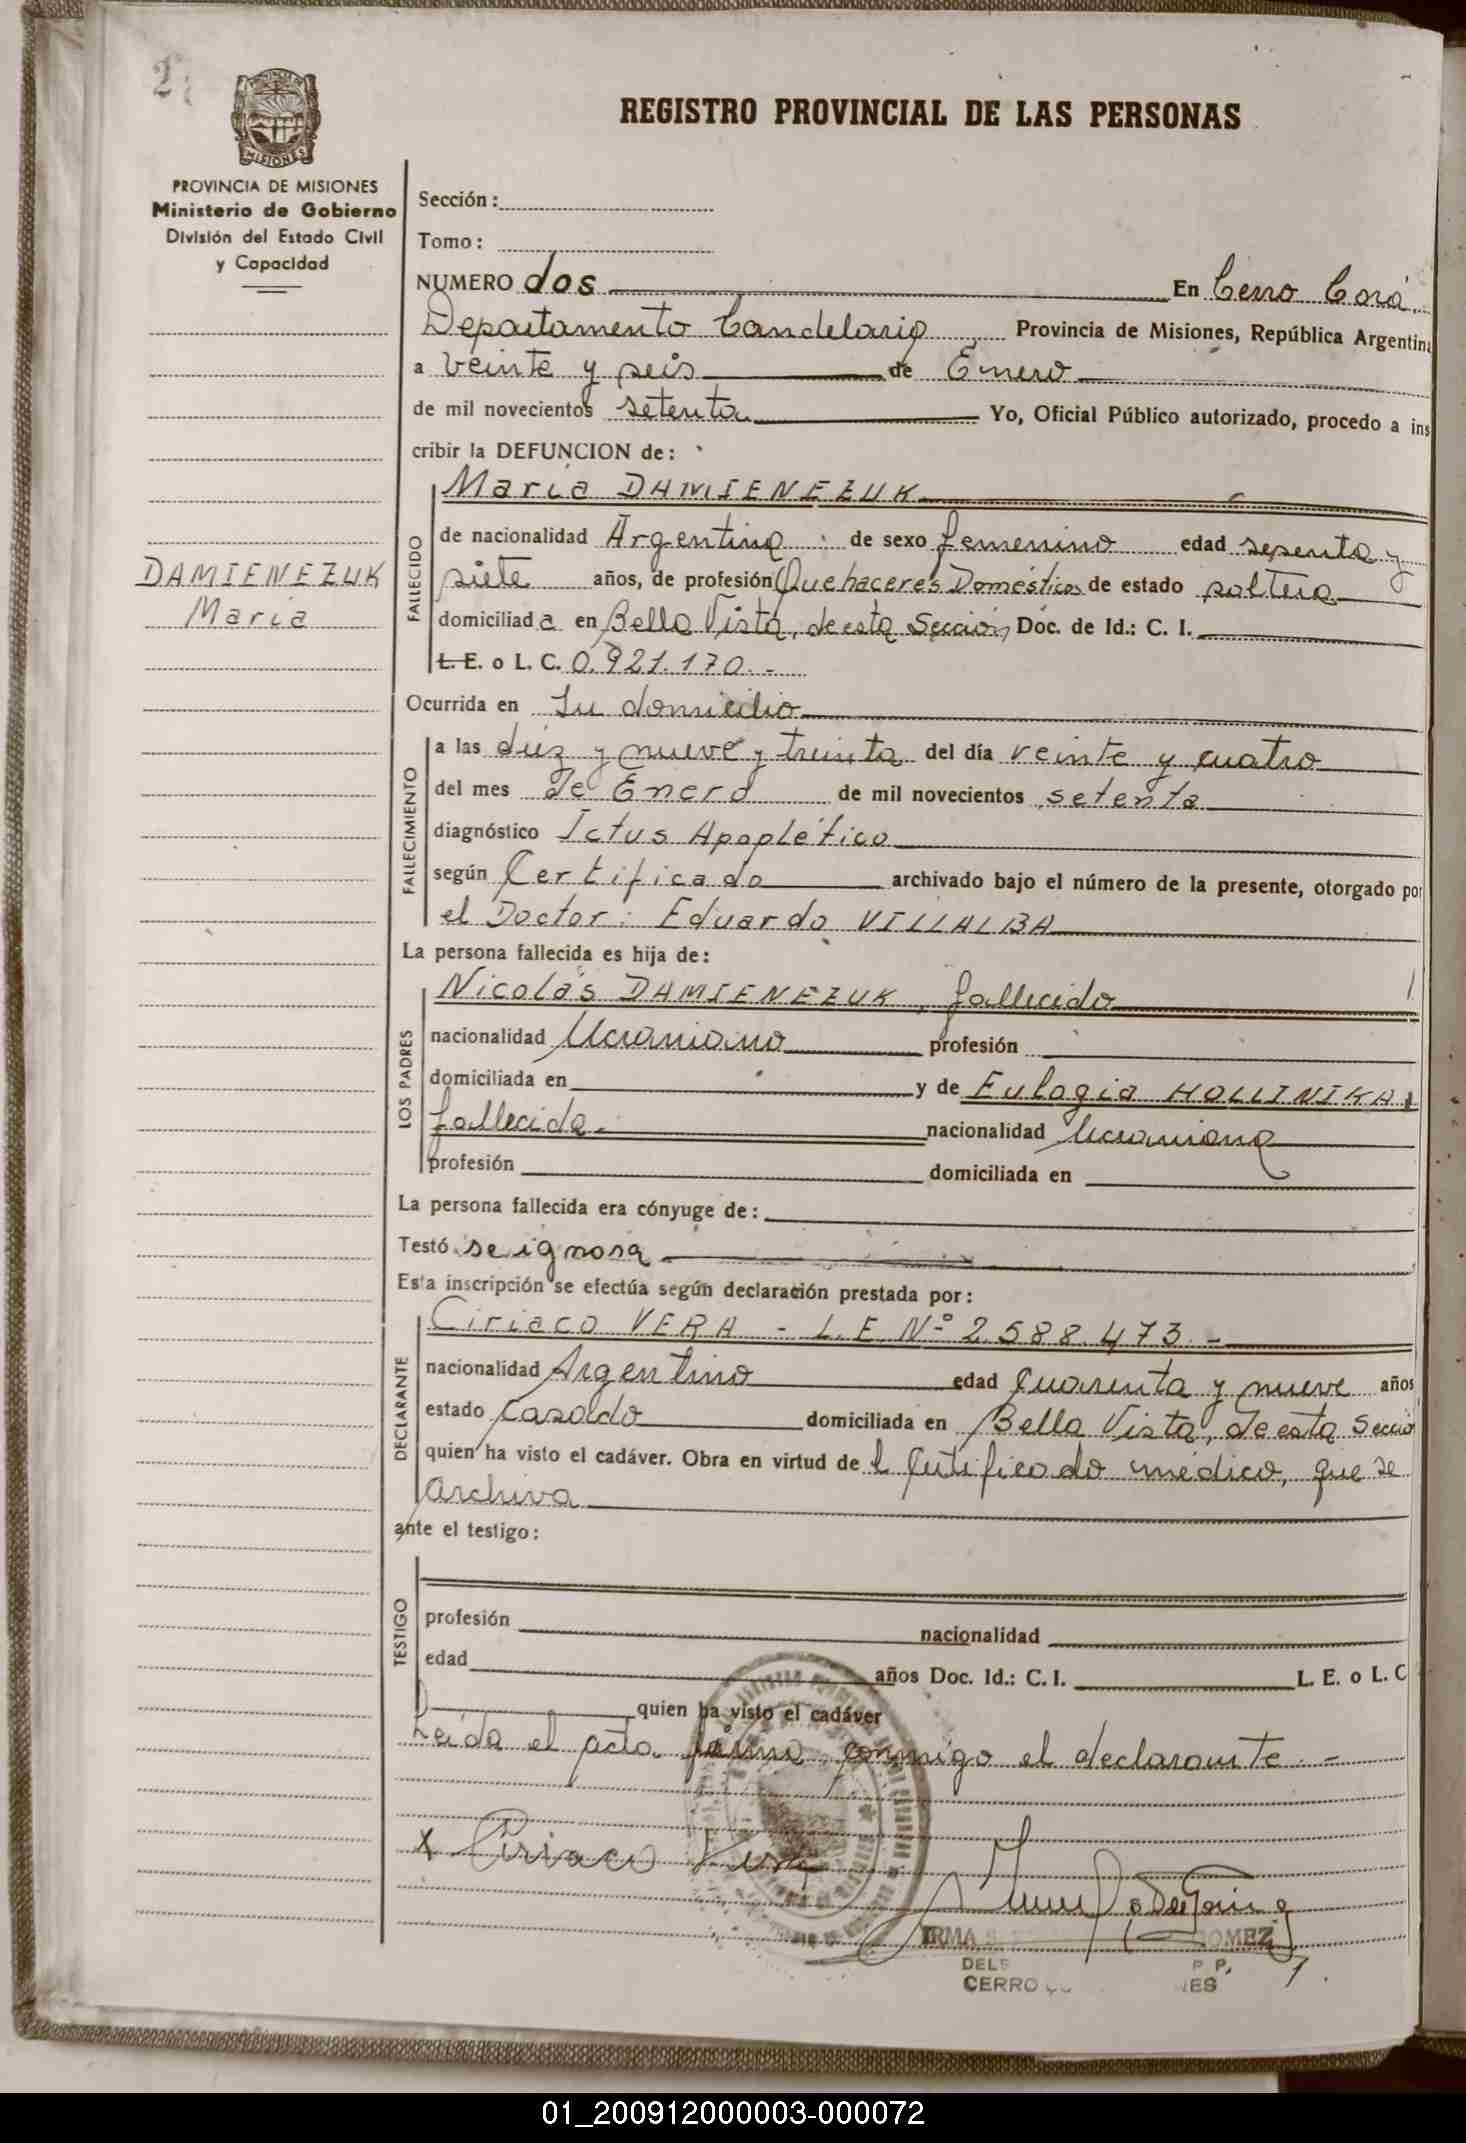 2
PROVINCIA DE MISIONES
MISIONES
PROVINCIA DE MISIONES
Ministerio de Gobierno
División del Estado Civil
y Capacidad
REGISTRO PROVINCIAL DE LAS PERSONAS
Sección:
Tomo:
NUMERO dos En Cerro Corá,
Departamento Candelaria Provincia de Misiones, República Argentina
a veinte y seis de Enero
de mil novecientos setenta Yo, Oficial Público autorizado, procedo a ins
cribir la DEFUNCION de:
María DAMIENEZUK
FALLECIDO
de nacionalidad Argentina de sexo femenino edad sesenta y
siete años, de profesión Quehaceres Domésticos de estado soltera
DAMIENEZUK
María
domiciliada en Bella Vista, de esta Sección, Doc. de Id.: C. I.
L. E. o L. C. 0.921.170.-
Ocurrida en Su domicilio
FALLECIMIENTO
a las diez y nueve y treinta del día veinte y cuatro
del mes de Enero de mil novecientos setenta
diagnóstico Ictus Apoplético
según Certificado archivado bajo el número de la presente, otorgado por
el Doctor: Eduardo VILLALBA
La persona fallecida es hija de:
LOS PADRES
Nicolás DAMIENEZUK, fallecido
nacionalidad Ucraniano profesión
domiciliada en y de Eulogia HOLLINIKA,
fallecida.- nacionalidad Ucraniana
profesión domiciliada en
La persona fallecida era cónyuge de:
Testó se ignora
Esta inscripción se efectúa según declaración prestada por:
DECLARANTE
Ciriaco VERA - L.E. Nº 2.588.473.-
nacionalidad Argentino edad cuarenta y nueve años
estado casado domiciliada en Bella Vista, de esta Secció
quien ha visto el cadáver. Obra en virtud del Certificado médico, que se
archiva
ante el testigo:
TESTIGO
profesión nacionalidad
edad años Doc. Id.: C. I. L. E. o L. C
quien ha visto el cadáver
Leída el acta firma conmigo el declarante.-
x Ciriaco Vera
IRMA S. GOMEZ
DEL P P.
CERRO NES
01_200912000003-000072